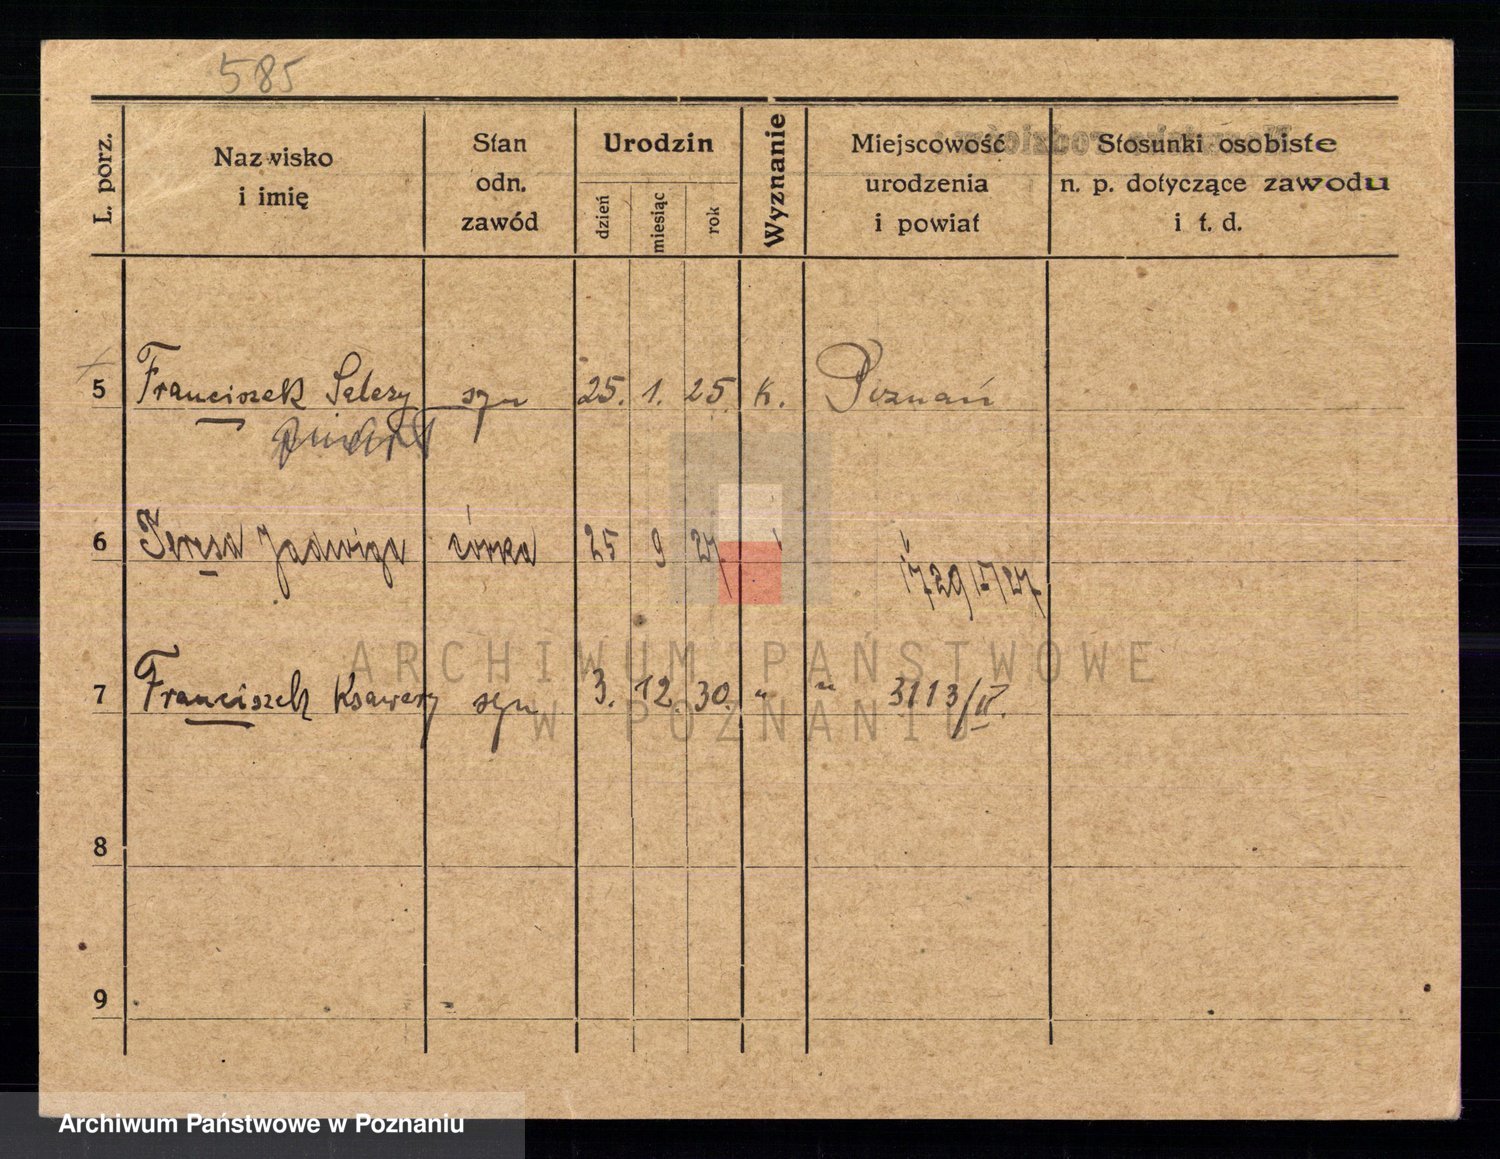 585
L. porz.
Nazwisko
i imię
Stan
odn.
zawód
Urodzin
dzień
miesiąc
rok
Wyznanie
Miejscowość
urodzenia
i powiat
Stosunki osobiste
n. p. dotyczące zawodu
i t. d.
5 Franciszek Salezy syn 25. 1. 25. k. Poznań
6 Teresa Jadwiga córka 25 9 27.
1729/V/27.
7 Franciszek Ksawery syn 3. 12. 30. „ „ 3113/II.
8
9
ARCHIWUM PAŃSTWOWE
W POZNANIU
Archiwum Państwowe w Poznaniu